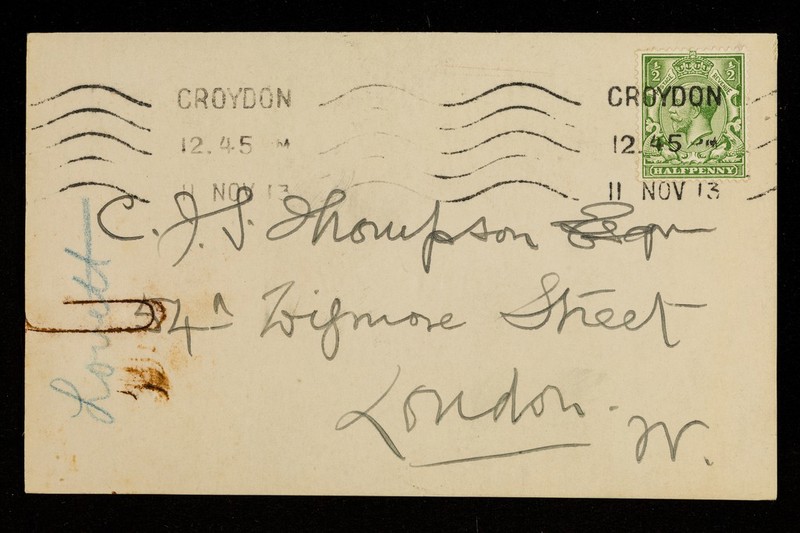 CROYDON
12.45 PM
11 NOV 13
CROYDON
12.45 PM
11 NOV 13
1/2 1/2
HALFPENNY
C. J. S. Thompson Esqr
54A Wigmore Street
London.
W.
Lovett